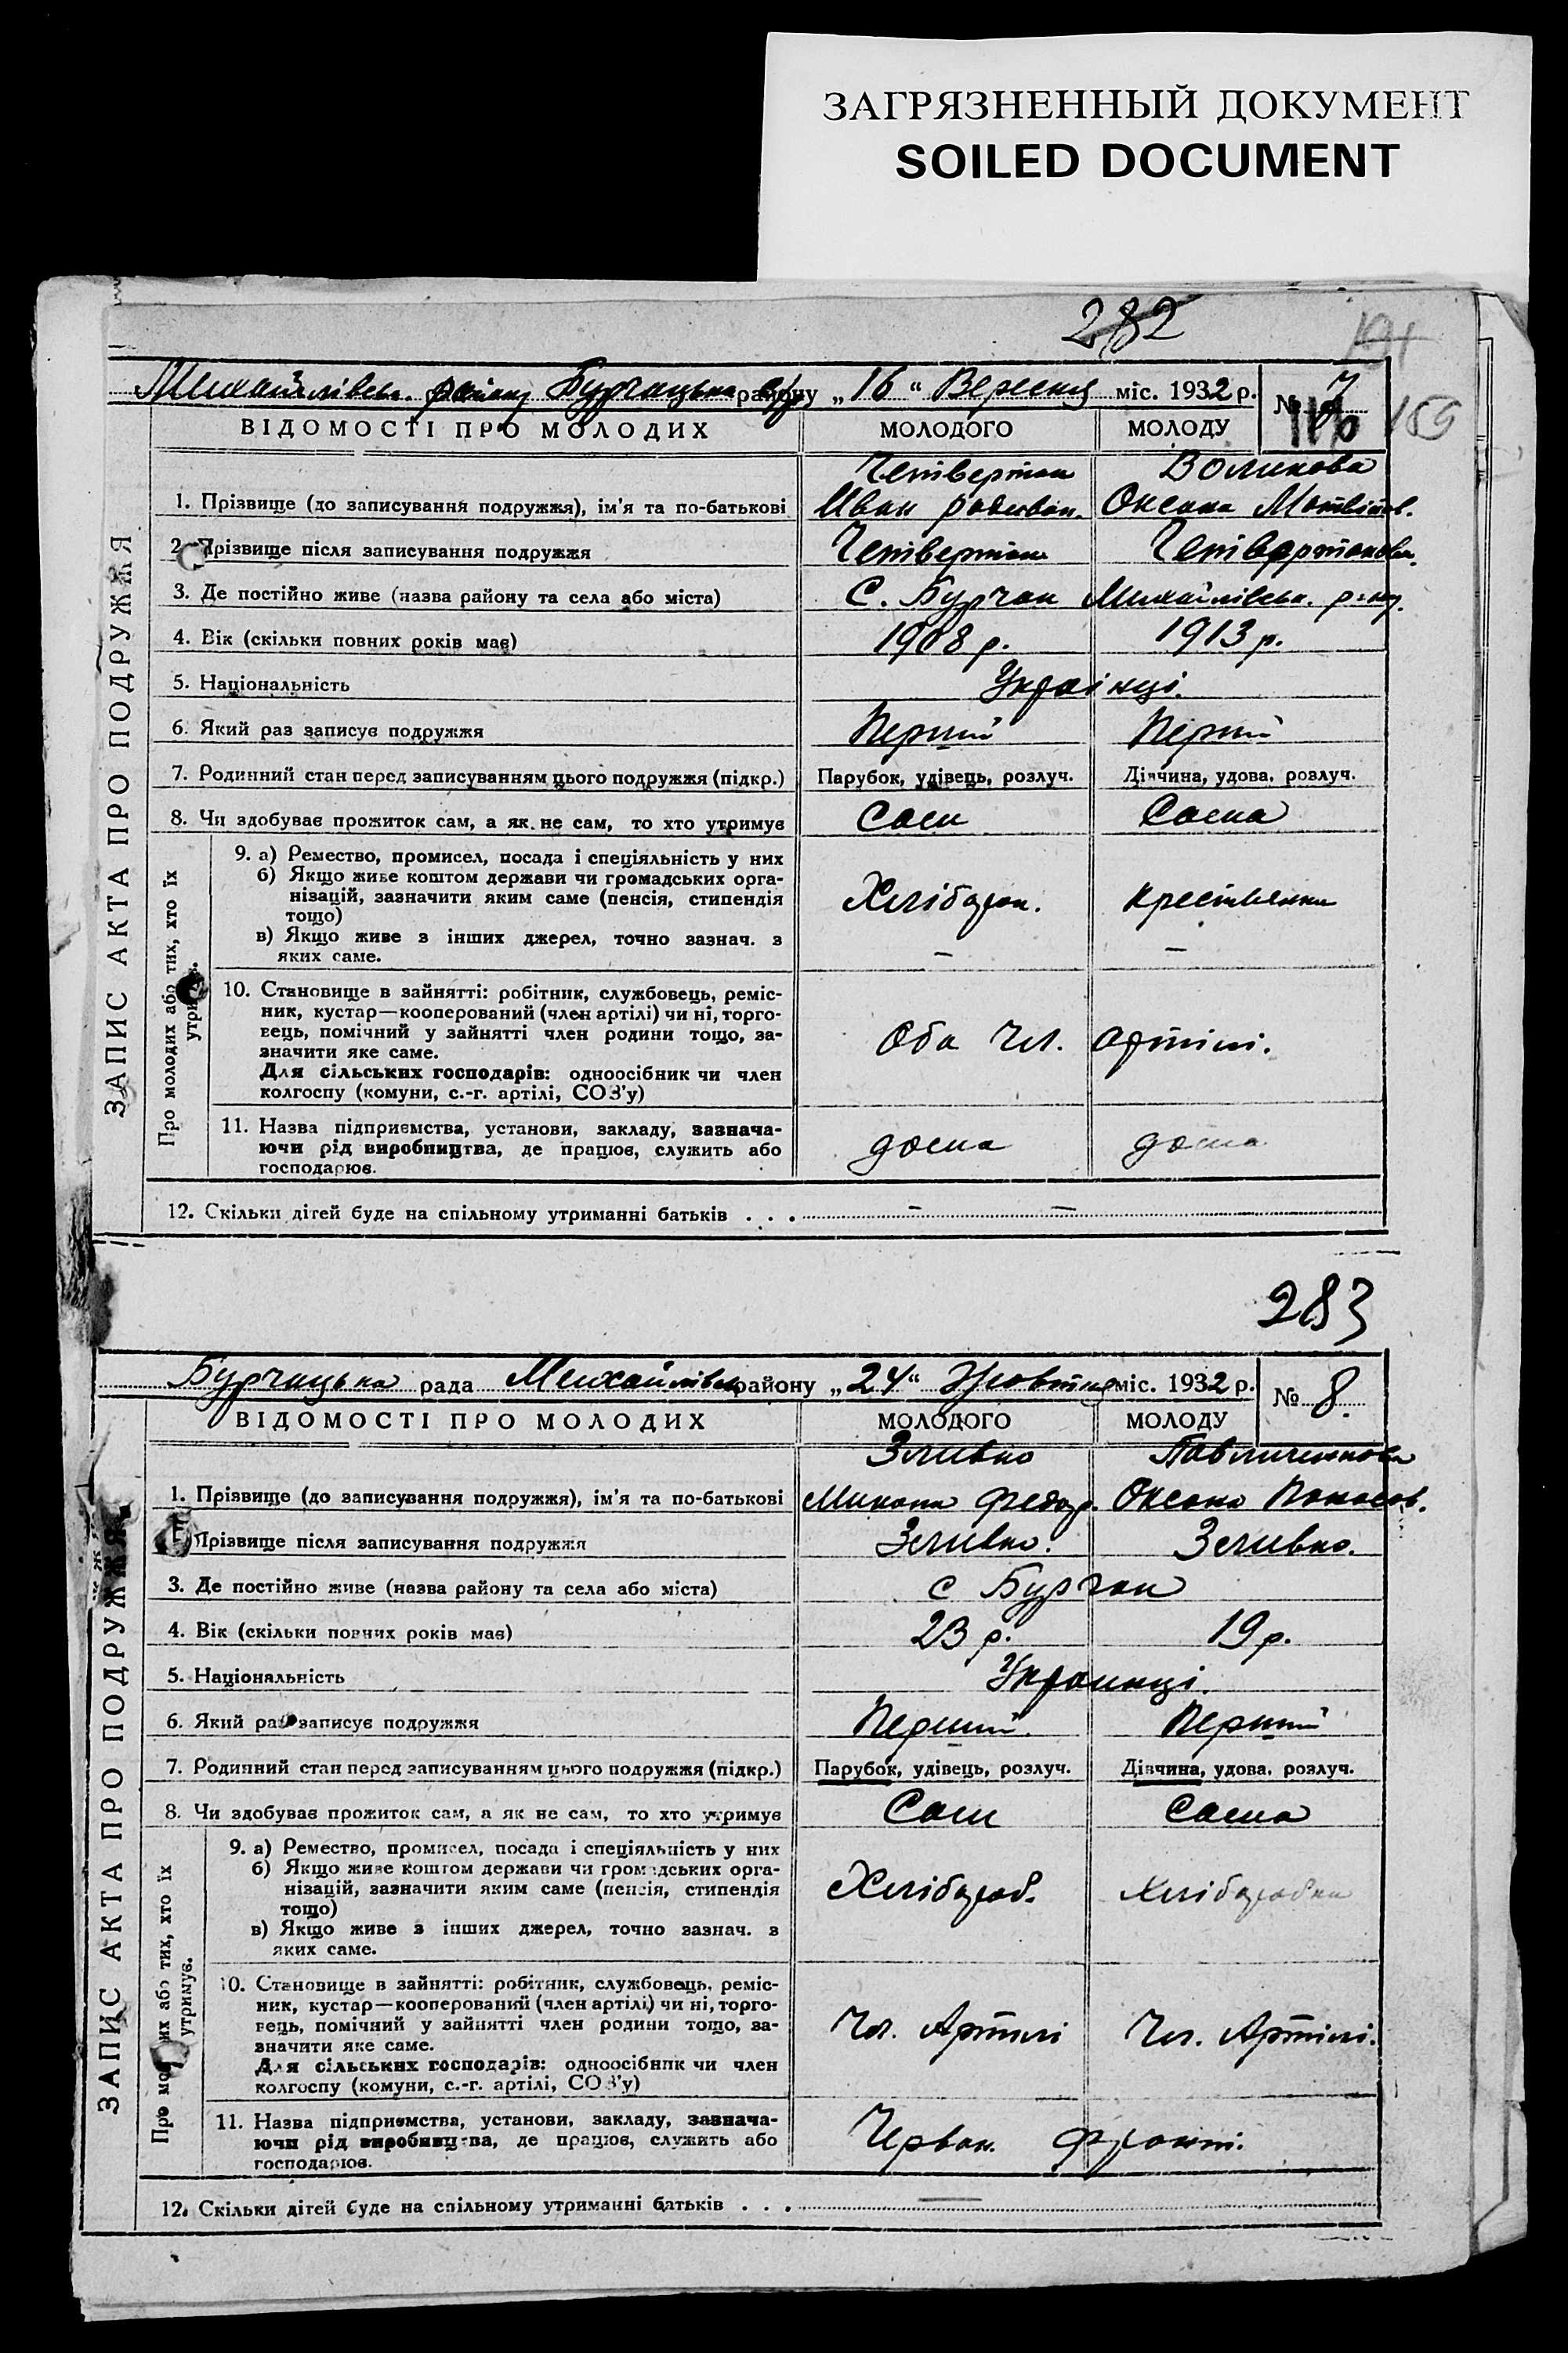 ЗАГРЯЗНЕННЫЙ ДОКУМЕНТ
SOILED DOCUMENT
282
Михайлівськ. району Бурчацька с/р району „16“ Вересня міс. 1932 р. № 7
159
ВІДОМОСТІ ПРО МОЛОДИХ МОЛОДОГО МОЛОДУ
ЗАПИС АКТА ПРО ПОДРУЖЖЯ
Четвертак Воликова
1. Прізвище (до записування подружжя), ім'я та по-батькові Иван Оксана
2. Прізвище після записування подружжя Четвертак Четвертакова
3. Де постійно живе (назва району та села або міста) С. Бурчак Михайлівськ. р-ну.
4. Вік (скільки повних років має) 1908 р. 1913 р.
5. Національність Українці.
6. Який раз записує подружжя Перший Перший
7. Родинний стан перед записуванням цього подружжя (підкр.) Парубок, удівець, розлуч. Дівчина, удова, розлуч.
8. Чи здобуває прожиток сам, а як не сам, то хто утримує Сам Сама
Про молодих або тих, хто їх
утримує.
9. а) Ремество, промисел, посада і спеціяльність у них
б) Якщо живе коштом держави чи громадських орга-
нізацій, зазначити яким саме (пенсія, стипендія Хлібороб. крестьянка
тощо)
в) Якщо живе з інших джерел, точно зазнач. з – –
яких саме.
10. Становище в зайнятті: робітник, службовець, реміс-
ник, кустар—кооперований (член артілі) чи ні, торго-
вець, помічний у зайнятті член родини тощо, за- Оба Чл. артілі.
значити яке саме.
Для сільських господарів: одноосібник чи член
колгоспу (комуни, с.-г. артілі, СОЗ'у)
11. Назва підприємства, установи, закладу, зазнача-
ючи рід виробництва, де працює, служить або дома дома
господарює.
12. Скільки дітей буде на спільному утриманні батьків . . . – –
283
Бурчацька рада Михайлівськ району „24“ Жовтня міс. 1932 р. № 8.
ВІДОМОСТІ ПРО МОЛОДИХ МОЛОДОГО МОЛОДУ
ЗАПИС АКТА ПРО ПОДРУЖЖЯ
Зливко Павличенкова
1. Прізвище (до записування подружжя), ім'я та по-батькові Федор. Оксана
Прізвище після записування подружжя Зливко. Зливко.
3. Де постійно живе (назва району та села або міста) с Бурчак
4. Вік (скільки повних років має) 23 р. 19 р.
5. Національність Украинці.
6. Який раз записує подружжя Перший Перший
7. Родинний стан перед записуванням цього подружжя (підкр.) Парубок, удівець, розлуч. Дівчина, удова, розлуч.
8. Чи здобуває прожиток сам, а як не сам, то хто утримує Сам Сама
Про молодих або тих, хто їх
утримує.
9. а) Ремество, промисел, посада і спеціяльність у них
б) Якщо живе коштом держави чи громадських орга-
нізацій, зазначити яким саме (пенсія, стипендія Хлібороб. Хліборобка
тощо)
в) Якщо живе з інших джерел, точно зазнач. з
яких саме.
10. Становище в зайнятті: робітник, службовець, реміс-
ник, кустар—кооперований (член артілі) чи ні, торго-
вець, помічний у зайнятті член родини тощо, за- Чл. Артілі Чл. Артілі.
значити яке саме.
Для сільських господарів: одноосібник чи член
колгоспу (комуни, с.-г. артілі, СОЗ'у)
11. Назва підприємства, установи, закладу, зазнача-
ючи рід виробництва, де працює, служить або Червон. Фронт.
господарює.
12. Скільки дітей буде на спільному утриманні батьків . . . —